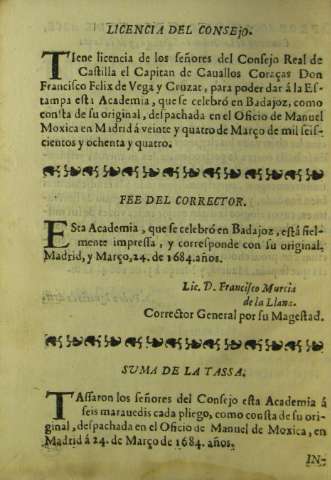 LICENCIA DEL CONSEJO.
TIene licencia de los señores del Consejo Real de
Castilla el Capitan de Cauallos Coraças Don
Francisco Felix de Vega y Cruzat, para poder dar á la Es-
tampa esta Academia, que se celebró en Badajoz, como
consta de su original, despachada en el Oficio de Manuel
Moxica en Madrid á veinte y quatro de Março de mil seis-
cientos y ochenta y quatro.
FEE DEL CORRECTOR.
ESta Academia, que se celebró en Badajoz, está fiel-
mente impressa, y corresponde con su original.
Madrid, y Março, 24. de 1684. años.
Lic. D. Francisco Murcia
de la Llana.
Corrector General por su Magestad.
SUMA DE LA TASSA.
TAssaron los señores del Consejo esta Academia á
seis marauedis cada pliego, como consta de su ori-
ginal, despachada en el Oficio de Manuel de Moxica, en
Madrid á 24. de Março de 1684. años.
IN-